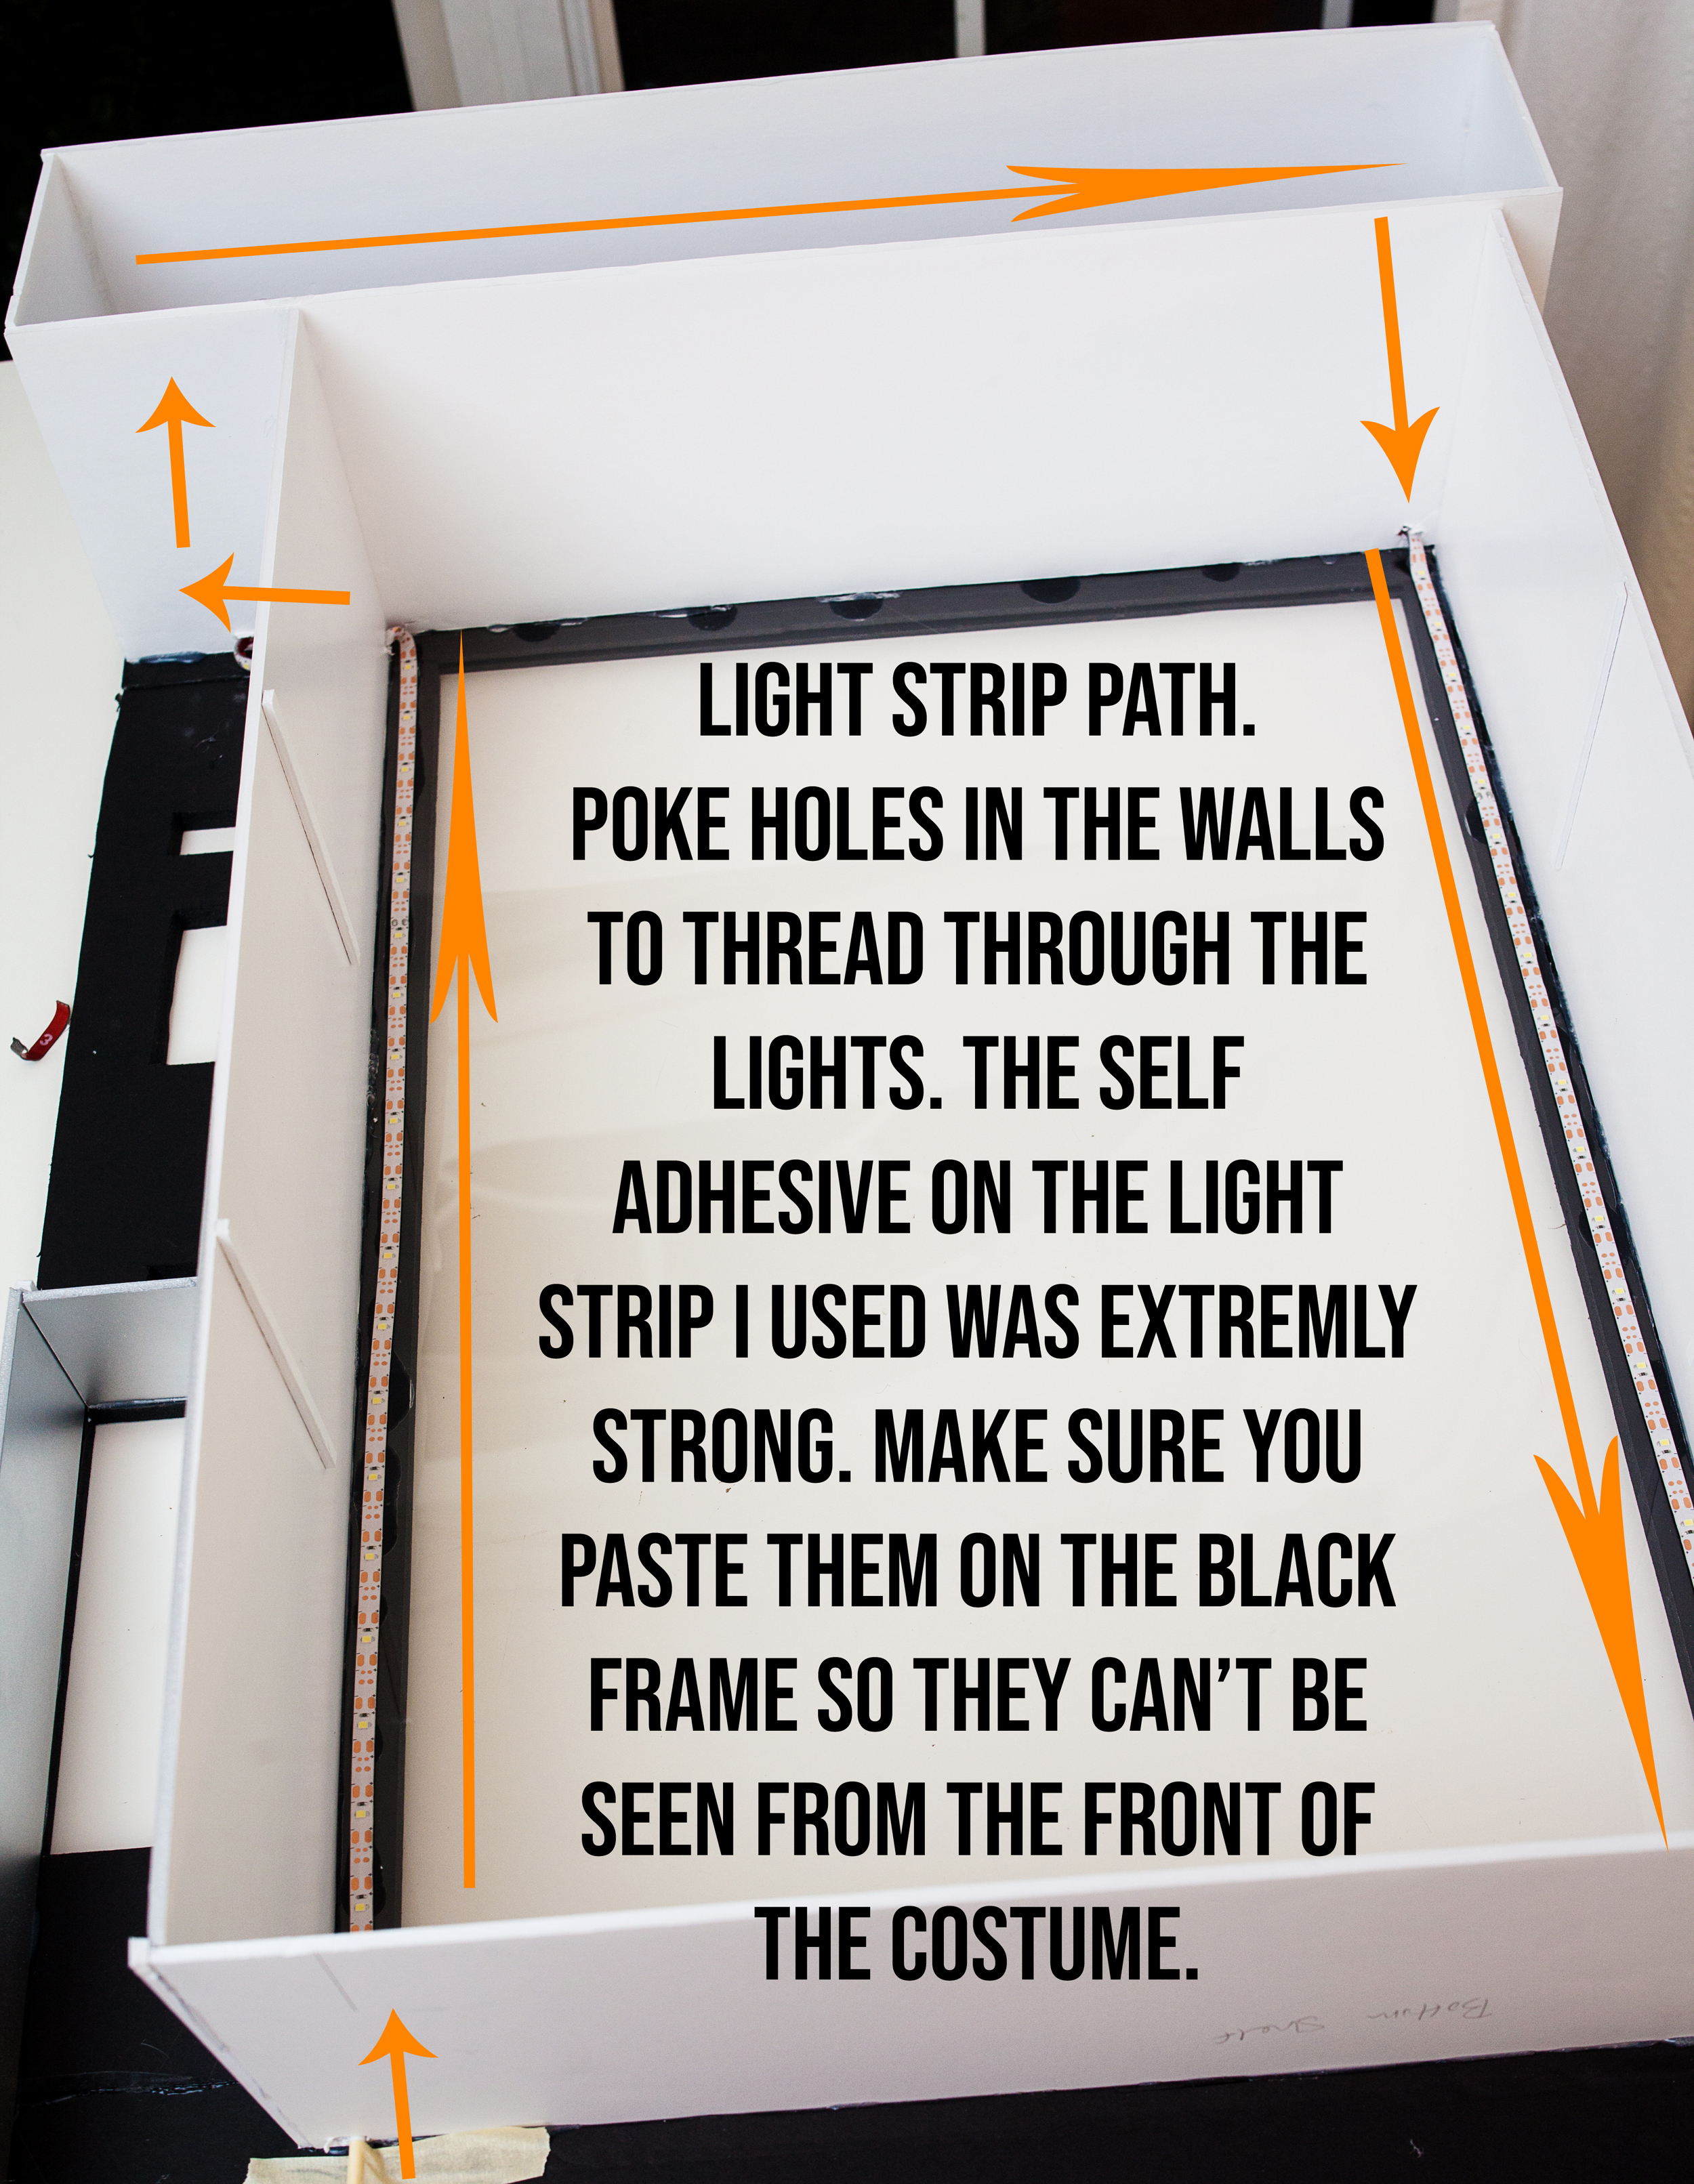 LIGHT STRIP PATH.
POKE HOLES IN THE WALLS
TO THREAD THROUGH THE
LIGHTS. THE SELF
ADHESIVE ON THE LIGHT
STRIP I USED WAS EXTREMLY
STRONG. MAKE SURE YOU
PASTE THEM ON THE BLACK
FRAME SO THEY CAN'T BE
SEEN FROM THE FRONT OF
THE COSTUME.
Bottom Shelf
3